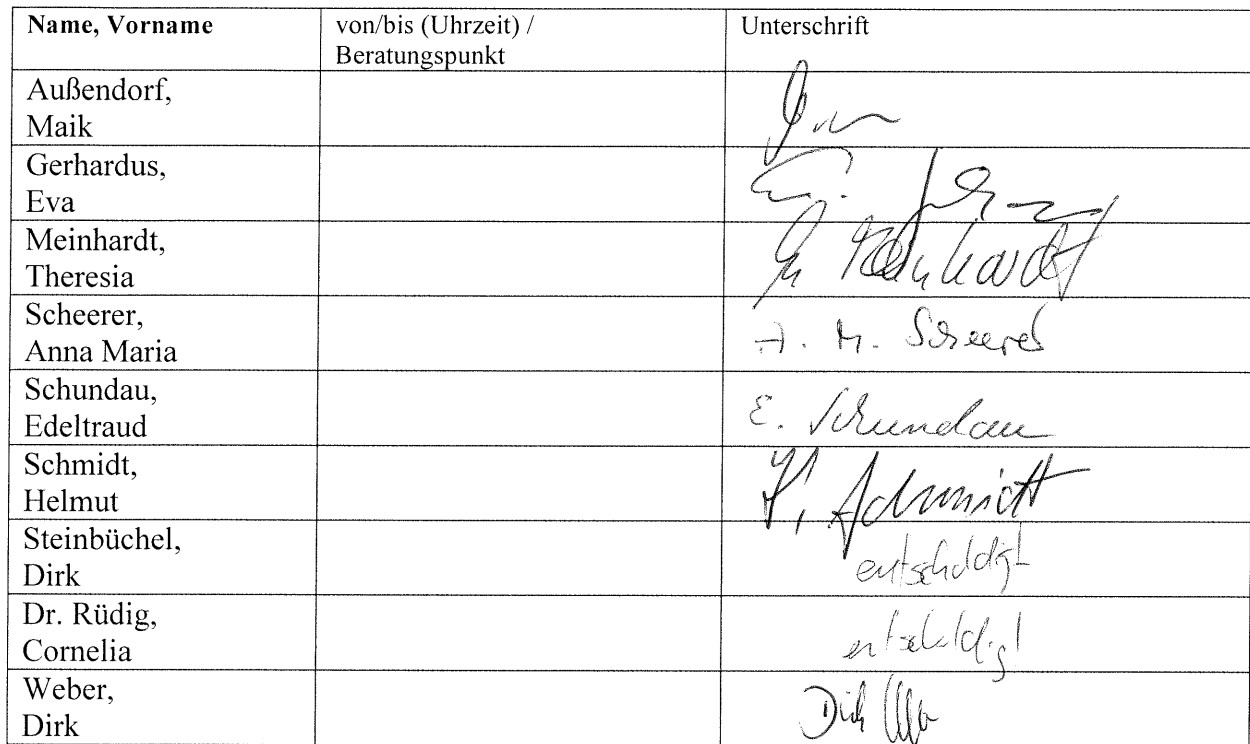 Name, Vorname von/bis (Uhrzeit) / Unterschrift
Beratungspunkt
Außendorf,
Maik
Gerhardus,
Eva
Meinhardt,
Theresia Meinhardt
Scheerer,
Anna Maria A. M. Scheerer
Schundau,
Edeltraud E. Schundau
Schmidt,
Helmut H. Schmidt
Steinbüchel,
Dirk entschuldigt
Dr. Rüdig,
Cornelia entschuldigt
Weber,
Dirk Dirk